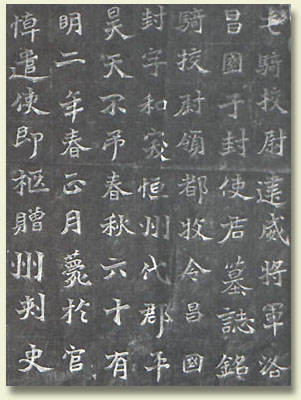 屯騎校尉建威將軍洛
昌國子封使君墓誌銘
騎校尉領都牧令昌國
封字和突恒州代郡平
昊天不弔春秋六十有
明二年春正月薨於官
悼遣使即柩贈州刾史